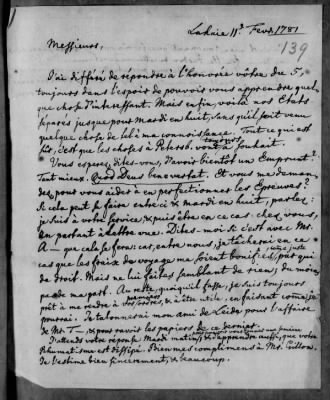 Lahaie 11e. Fevr. 1781
139
Messieurs,
J'ai différé de répondre à l'honorée vôtre du 5,
toujours dans l'espoir de pouvoir vous apprendre quel-
que chose d'interessant. Mais enfin, voilà nos Etats
séparés jusque pour Mardi en huit, sans qu'il soit venu
quelque chose de là à ma connoissance. Tout ce qui est
sûr, c'est que les choses à Petersb. vont à souhait.
Vous esperez, dites-vous, d'avoir bientôt un Emprunt?
Tant mieux. Quod Deus bene vertat. Et vous me deman-
dez pour vous aider à en perfectionner les Epreuves?
Si cela peut se faire entre ci & mardi en huit, parlez:
je suis à votre service, & puis être en ce cas chez vous,
en partant à lettre vue. Dites-moi si c'est avec Mr.
A— que cela se fera: car, entre nous, je tâcherai en ce
cas que les fraix du voyage me soient bonifiés par qui
de droit. Mais ne lui faites semblant de rien, du moins
pas de ma part. Au reste, quoiqu'il fasse, je suis toujours
prêt à me rendre à vos ordres, & à être utile, en faisant comme je
pourrai. Je talonnerai mon ami de Leide pour l'affaire
de Mr. T—, & pour ravoir les papiers de ce dernier.
J'attends votre réponse Mardi matin, & d'apprendre aussi, que votre
Rhumatisme est dissipé. Bien mes complimens à Mr. Gillon.
Je l'estime bien sincerement, & beaucoup.